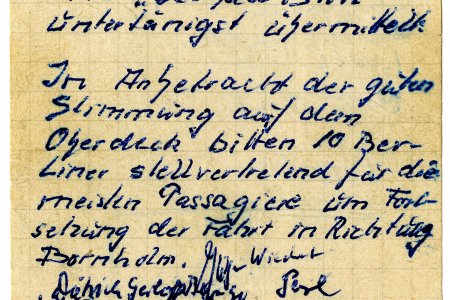 untertänigst übermittelt
In Anbetracht der guten
Stimmung auf dem
Oberdeck bitten 10 Ber-
liner stellvertretend für die
meisten Passagiere um Fort-
setzung der Fahrt in Richtung
Bornholm.